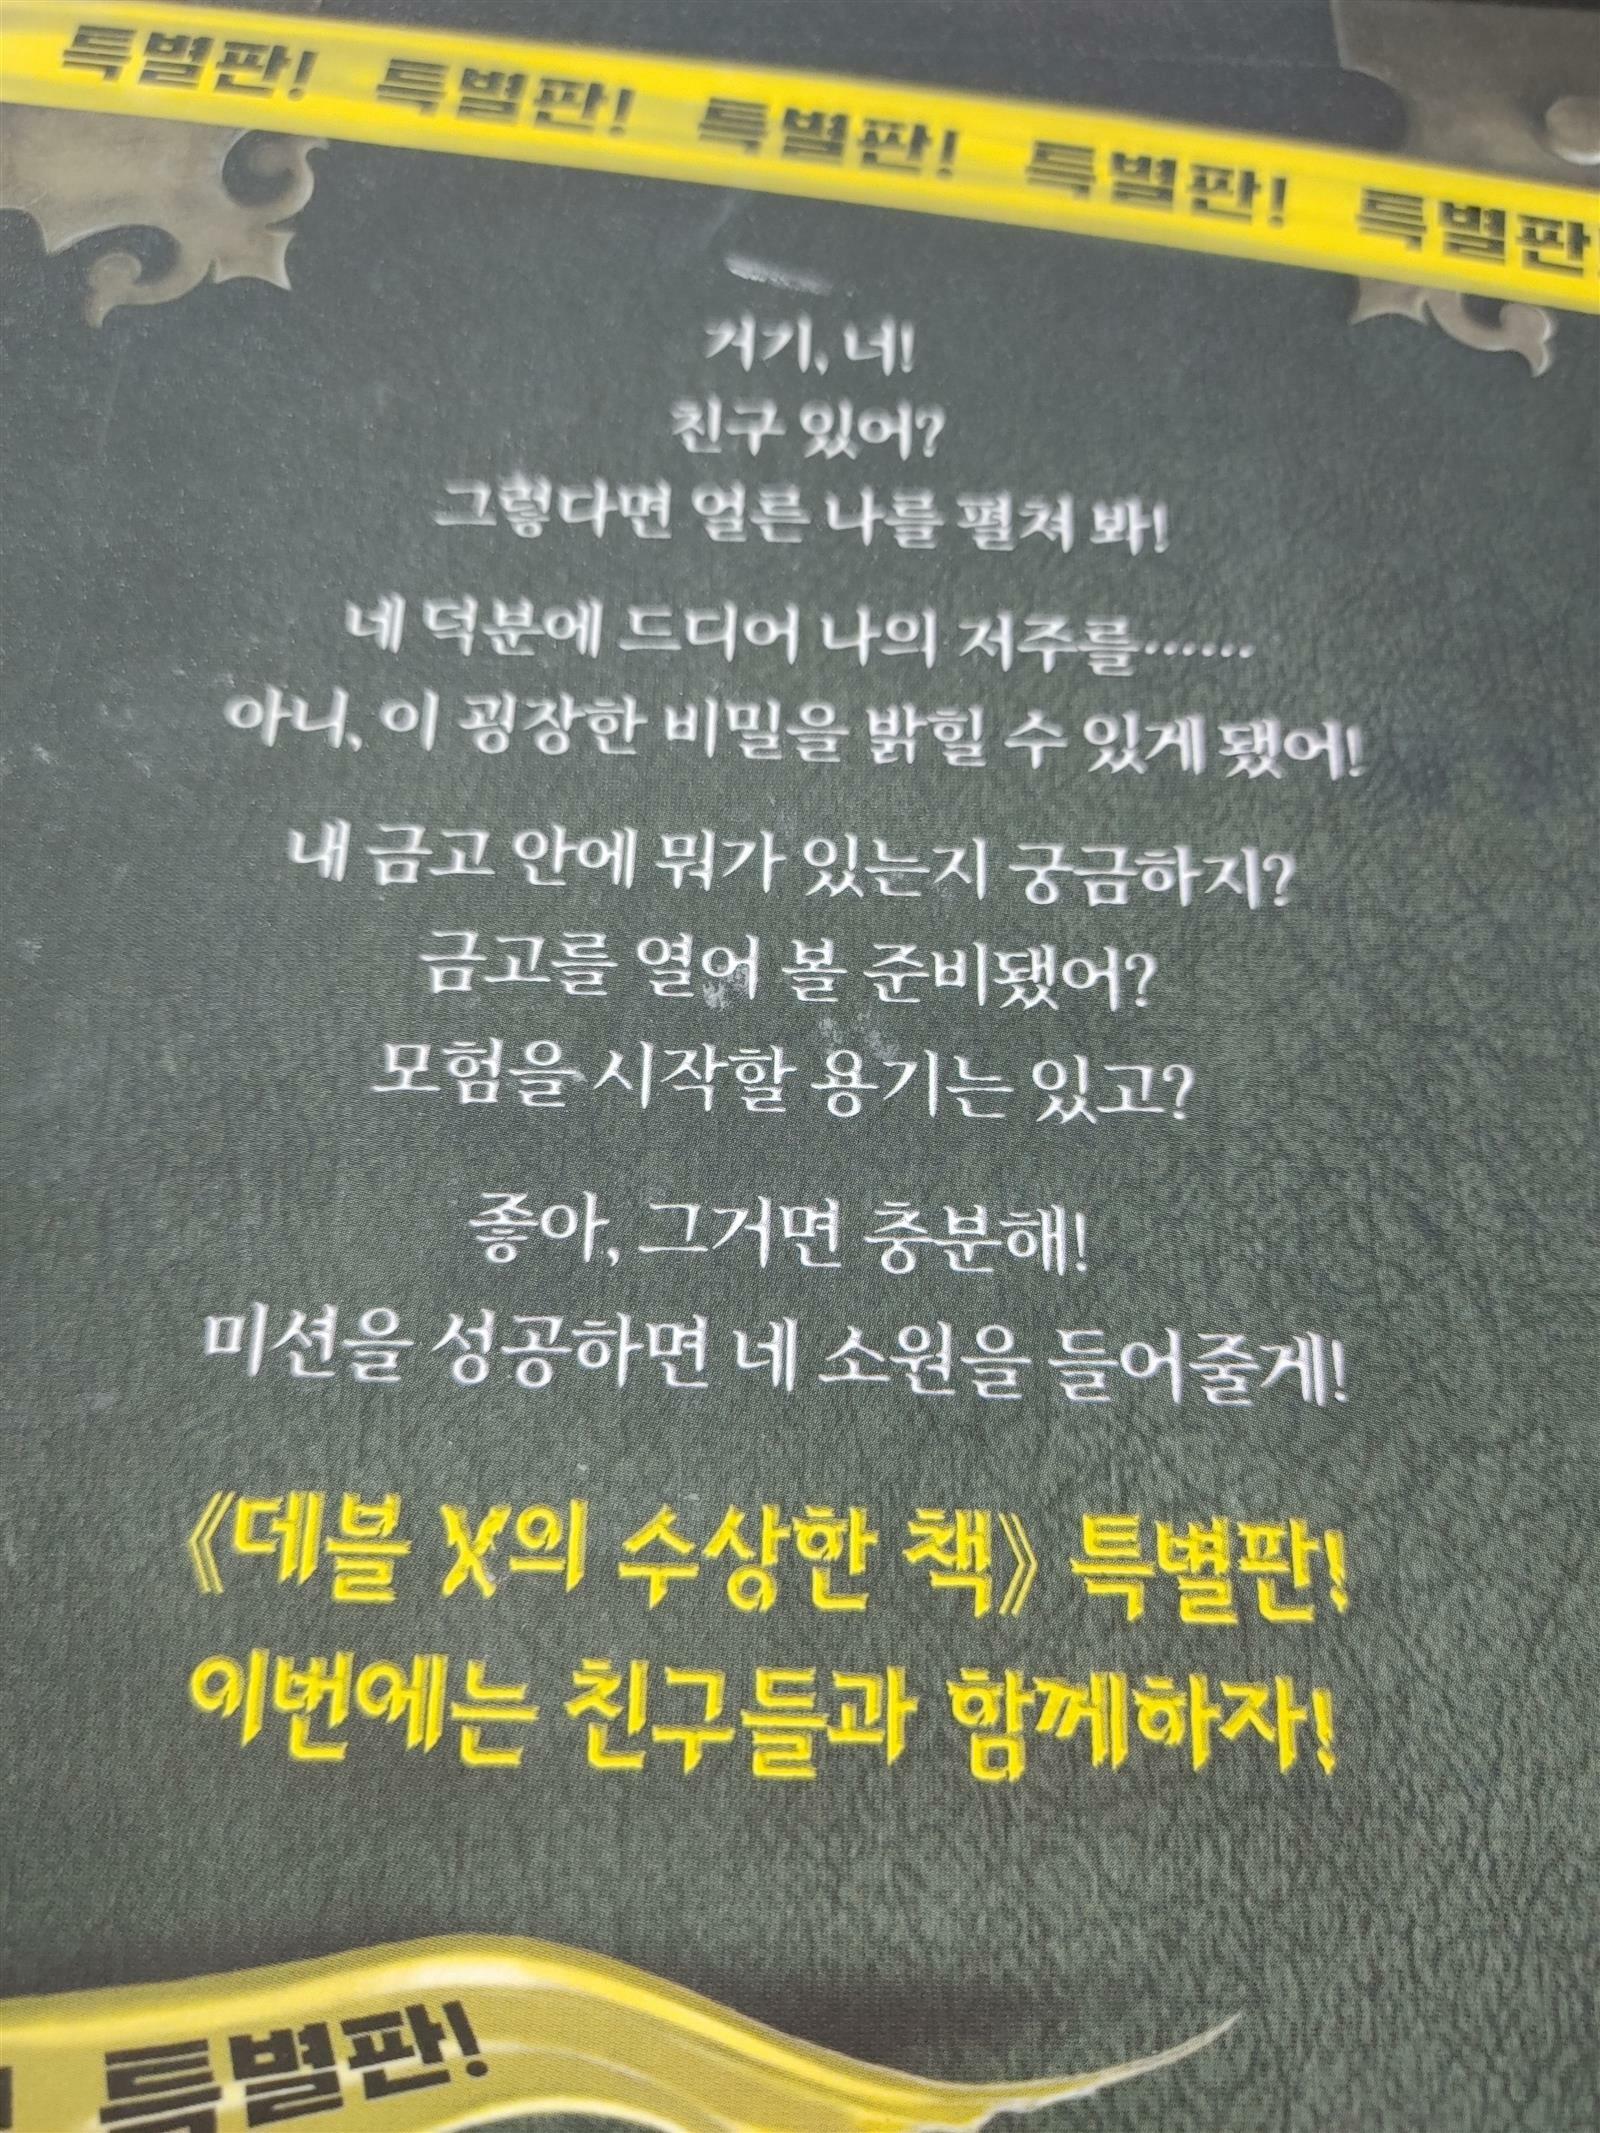 특별판! 특별판! 특별판! 특별판! 특별판!
거기, 너!
친구 있어?
그렇다면 얼른 나를 펼쳐 봐!
네 덕분에 드디어 나의 저주를……
아니, 이 굉장한 비밀을 밝힐 수 있게 됐어!
내 금고 안에 뭐가 있는지 궁금하지?
금고를 열어 볼 준비됐어?
모험을 시작할 용기는 있고?
좋아, 그거면 충분해!
미션을 성공하면 네 소원을 들어줄게!
《데블 X의 수상한 책》 특별판!
이번에는 친구들과 함께하자!
특별판!